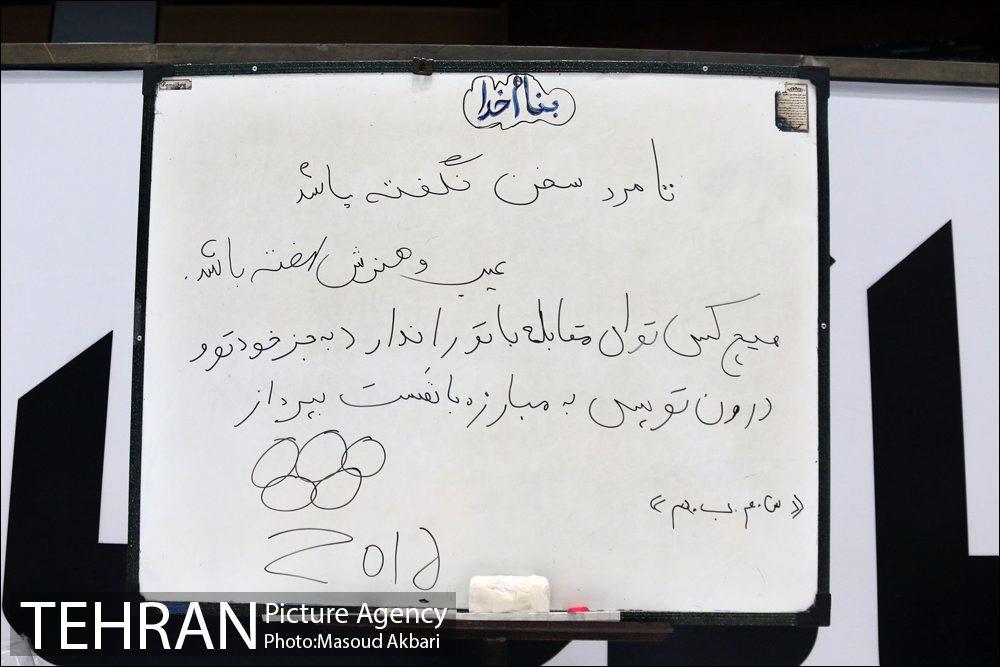 بنام خدا
تا مرد سخن نگفته باشد
عیب و هنرش نهفته باشد.
هیچ کس توان مقابله با تو را ندارد به جز خود تو و
درون تو پس به مبارزه با نفست بپرداز
2012
TEHRAN Picture Agency
Photo:Masoud Akbari